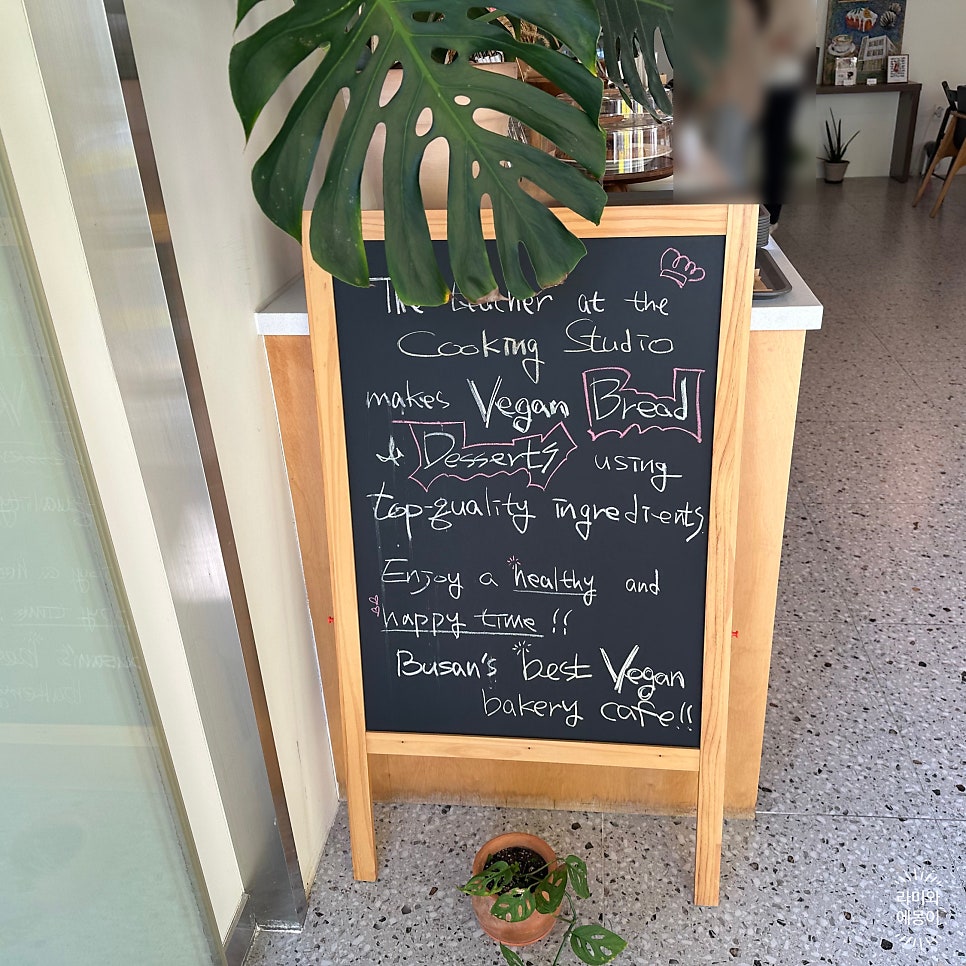 The teacher at the
Cooking Studio
makes Vegan Bread
& Desserts using
top-quality ingredients
Enjoy a healthy and
happy time !!
Busan's best Vegan
bakery cafe!!
라미와
에몽이